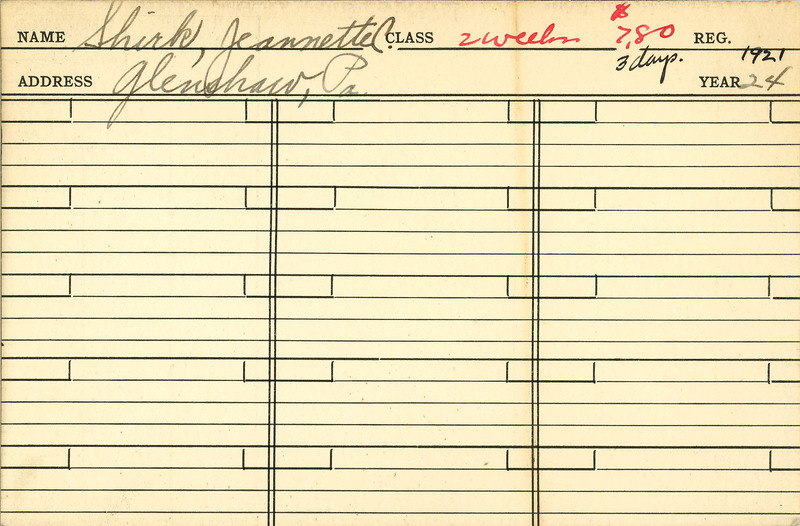 NAME Shirk, Jeannette C. CLASS 2 weeks $7.80 REG.
3 days. 1921
ADDRESS Glenshaw, Pa. YEAR 24